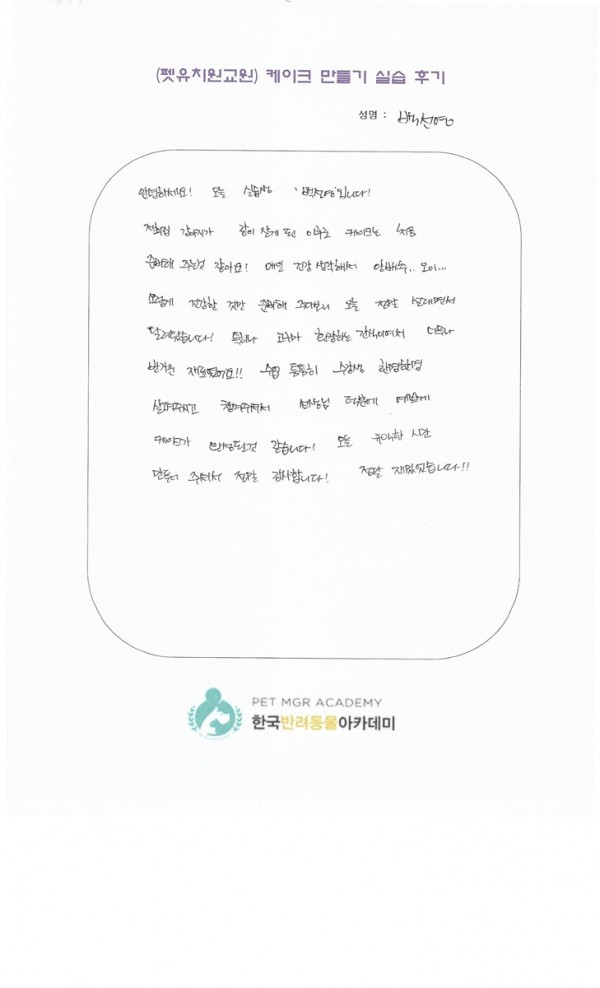 (펫유치원교원) 케이크 만들기 실습 후기
성명 : 백선영
안녕하세요! 오늘 실습생 '백선영'입니다!
저희집 강아지가 같이 살게 된 이후로 케이크는 처음
준비해 주는것 같아요! 매일 건강 생각해서 양배추.. 오이...
이렇게 건강한 것만 준비해 주다보니 오늘 정말 설레면서
달려왔습니다! 특히나 고구마 환장하는 강아지여서 더욱나
반가운 재료였어요!! 수업 틈틈히 수강생 한명한명
살펴봐주시고 챙겨주셔서 선생님 덕분에 예쁘게
케이크가 완성된것 같습니다! 오늘 유익한 시간
만들어 주셔서 정말 감사합니다! 정말 재밌었습니다!!
PET MGR ACADEMY
한국반려동물아카데미